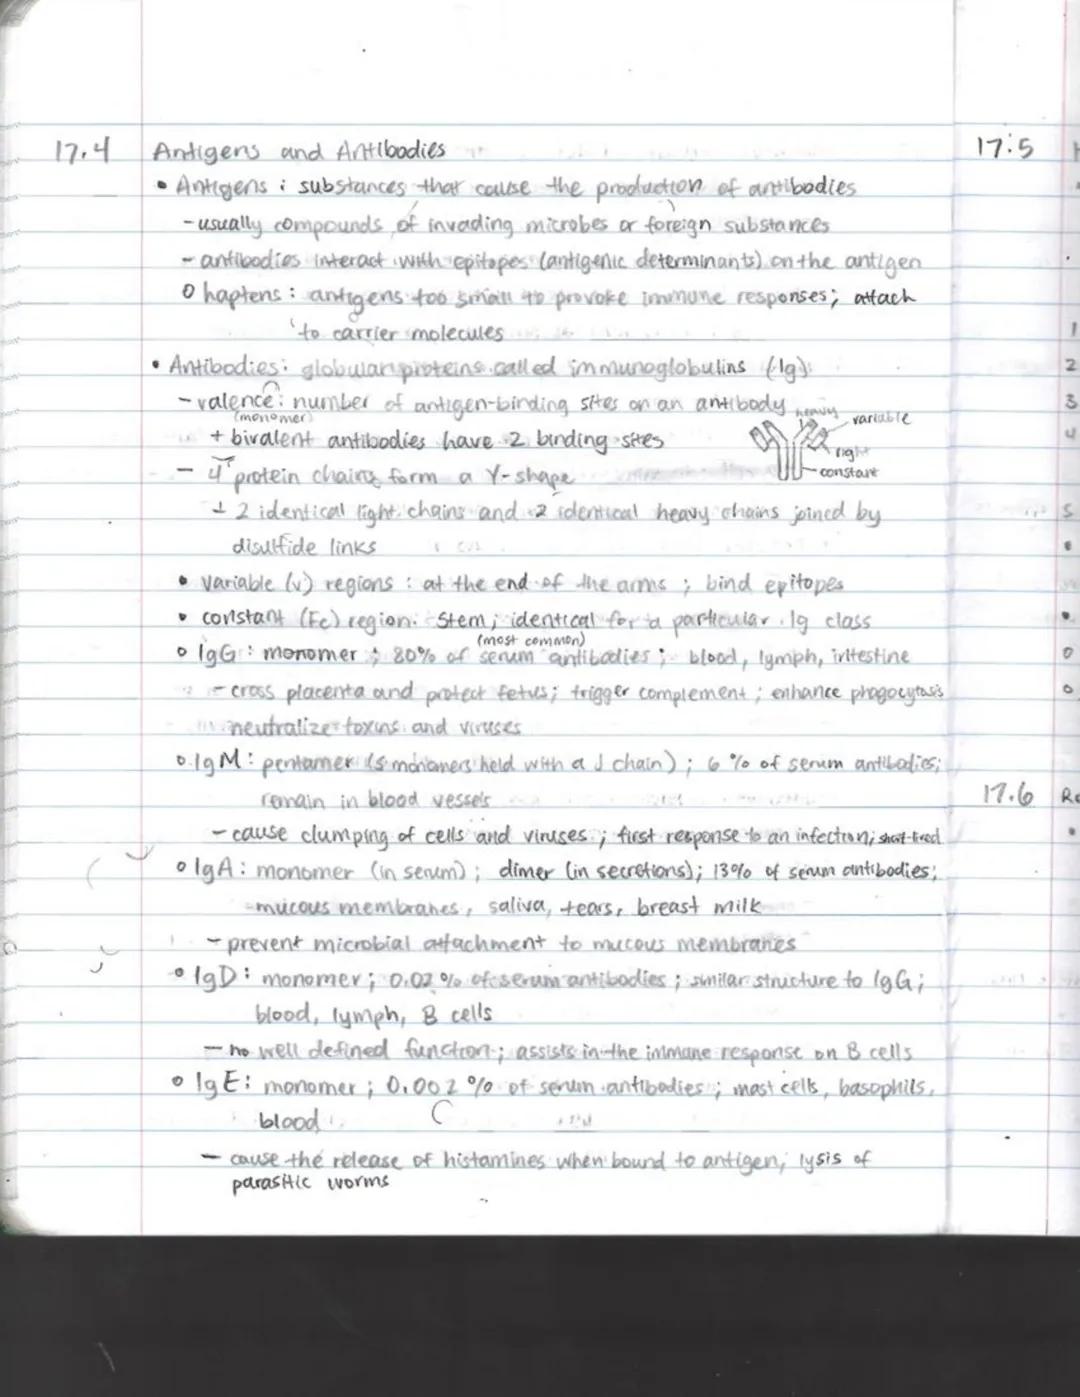 17.4 Antigens and Antibodies
• Antigens : substances that cause the production of antibodies
- usually compounds of invading microbes or foreign substances
- antibodies interact with epitopes (antigenic determinants) on the antigen
o haptens : antigens too small to provoke immune responses; attach
to carrier molecules
• Antibodies: globular proteins called immunoglobulins (Ig)
- valence: number of antigen-binding sites on an antibody
(monomer)
+ bivalent antibodies have 2 binding sites
heavy
variable
constant
- 4 protein chains form a Y-shape
+ 2 identical light chains and 2 identical heavy chains joined by
disulfide links
• variable (v) regions : at the end of the arms ; bind epitopes
• constant (Fc) region: Stem; identical for a particular Ig class
(most common)
o IgG : monomer ; 80% of serum antibodies ; blood, lymph, intestine
- cross placenta and protect fetus; trigger complement ; enhance phagocytosis
neutralize toxins and viruses
o IgM : pentamer (5 monomers held with a J chain) ; 6 % of serum antibodies;
remain in blood vessels
- cause clumping of cells and viruses ; first response to an infection; short-lived
o IgA : monomer (in serum) ; dimer (in secretions); 13% of serum antibodies;
mucous membranes, saliva, tears, breast milk
- prevent microbial attachment to mucous membranes
o IgD : monomer; 0.02 % of serum antibodies ; similar structure to IgG;
blood, lymph, B cells
- no well defined function ; assists in the immune response on B cells
o IgE : monomer ; 0.002 % of serum antibodies ; mast cells, basophils,
blood
- cause the release of histamines when bound to antigen; lysis of
parasitic worms
17.5
1
2
3
4
5
17.6